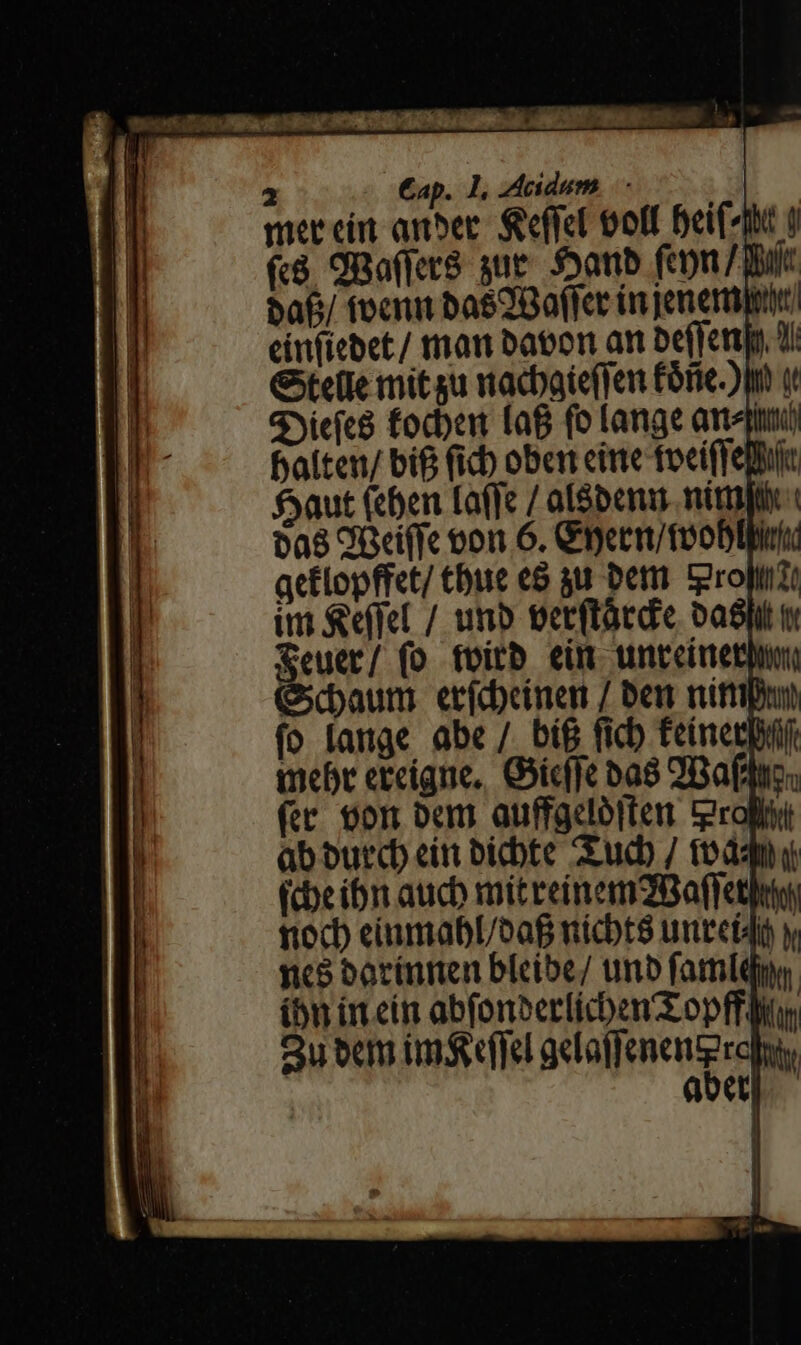 2 Cap. I, Acidum
mer ein ander Keſſel voll heiſ⸗
ſes Waſſers zur Hand ſeyn/
daß/ wenn das Waſſer in jenem
einſiedet / man davon an deſſen
Stelle mit zu nachgieſſen koͤñe.)
Dieſes kochen laß ſo lange an⸗
halten/ biß ſich oben eine weiſſe
Haut ſehen laſſe / alsdenn nim
das Weiſſe von 6. Eyern/ wohl
geklopffet/ thue es zu dem 🜿ro
im Keſſel / und verſtaͤrcke das
Feuer/ ſo wird ein unreiner
Schaum erſcheinen / den nim
ſo lange abe / biß ſich keiner
mehr ereigne. Gieſſe das Waſ⸗
ſer von dem auffgeloͤſten 🜿ro
ab durch ein dichte Tuch / waͤ⸗
ſche ihn auch mit reinem Waſſer
noch einmahl/ daß nichts unrei⸗
nes darinnen bleibe/ und ſamle
ihn in ein abſonderlichen Topff.
Zu dem im Keſſel gelaſſenen 🜿ro
aber